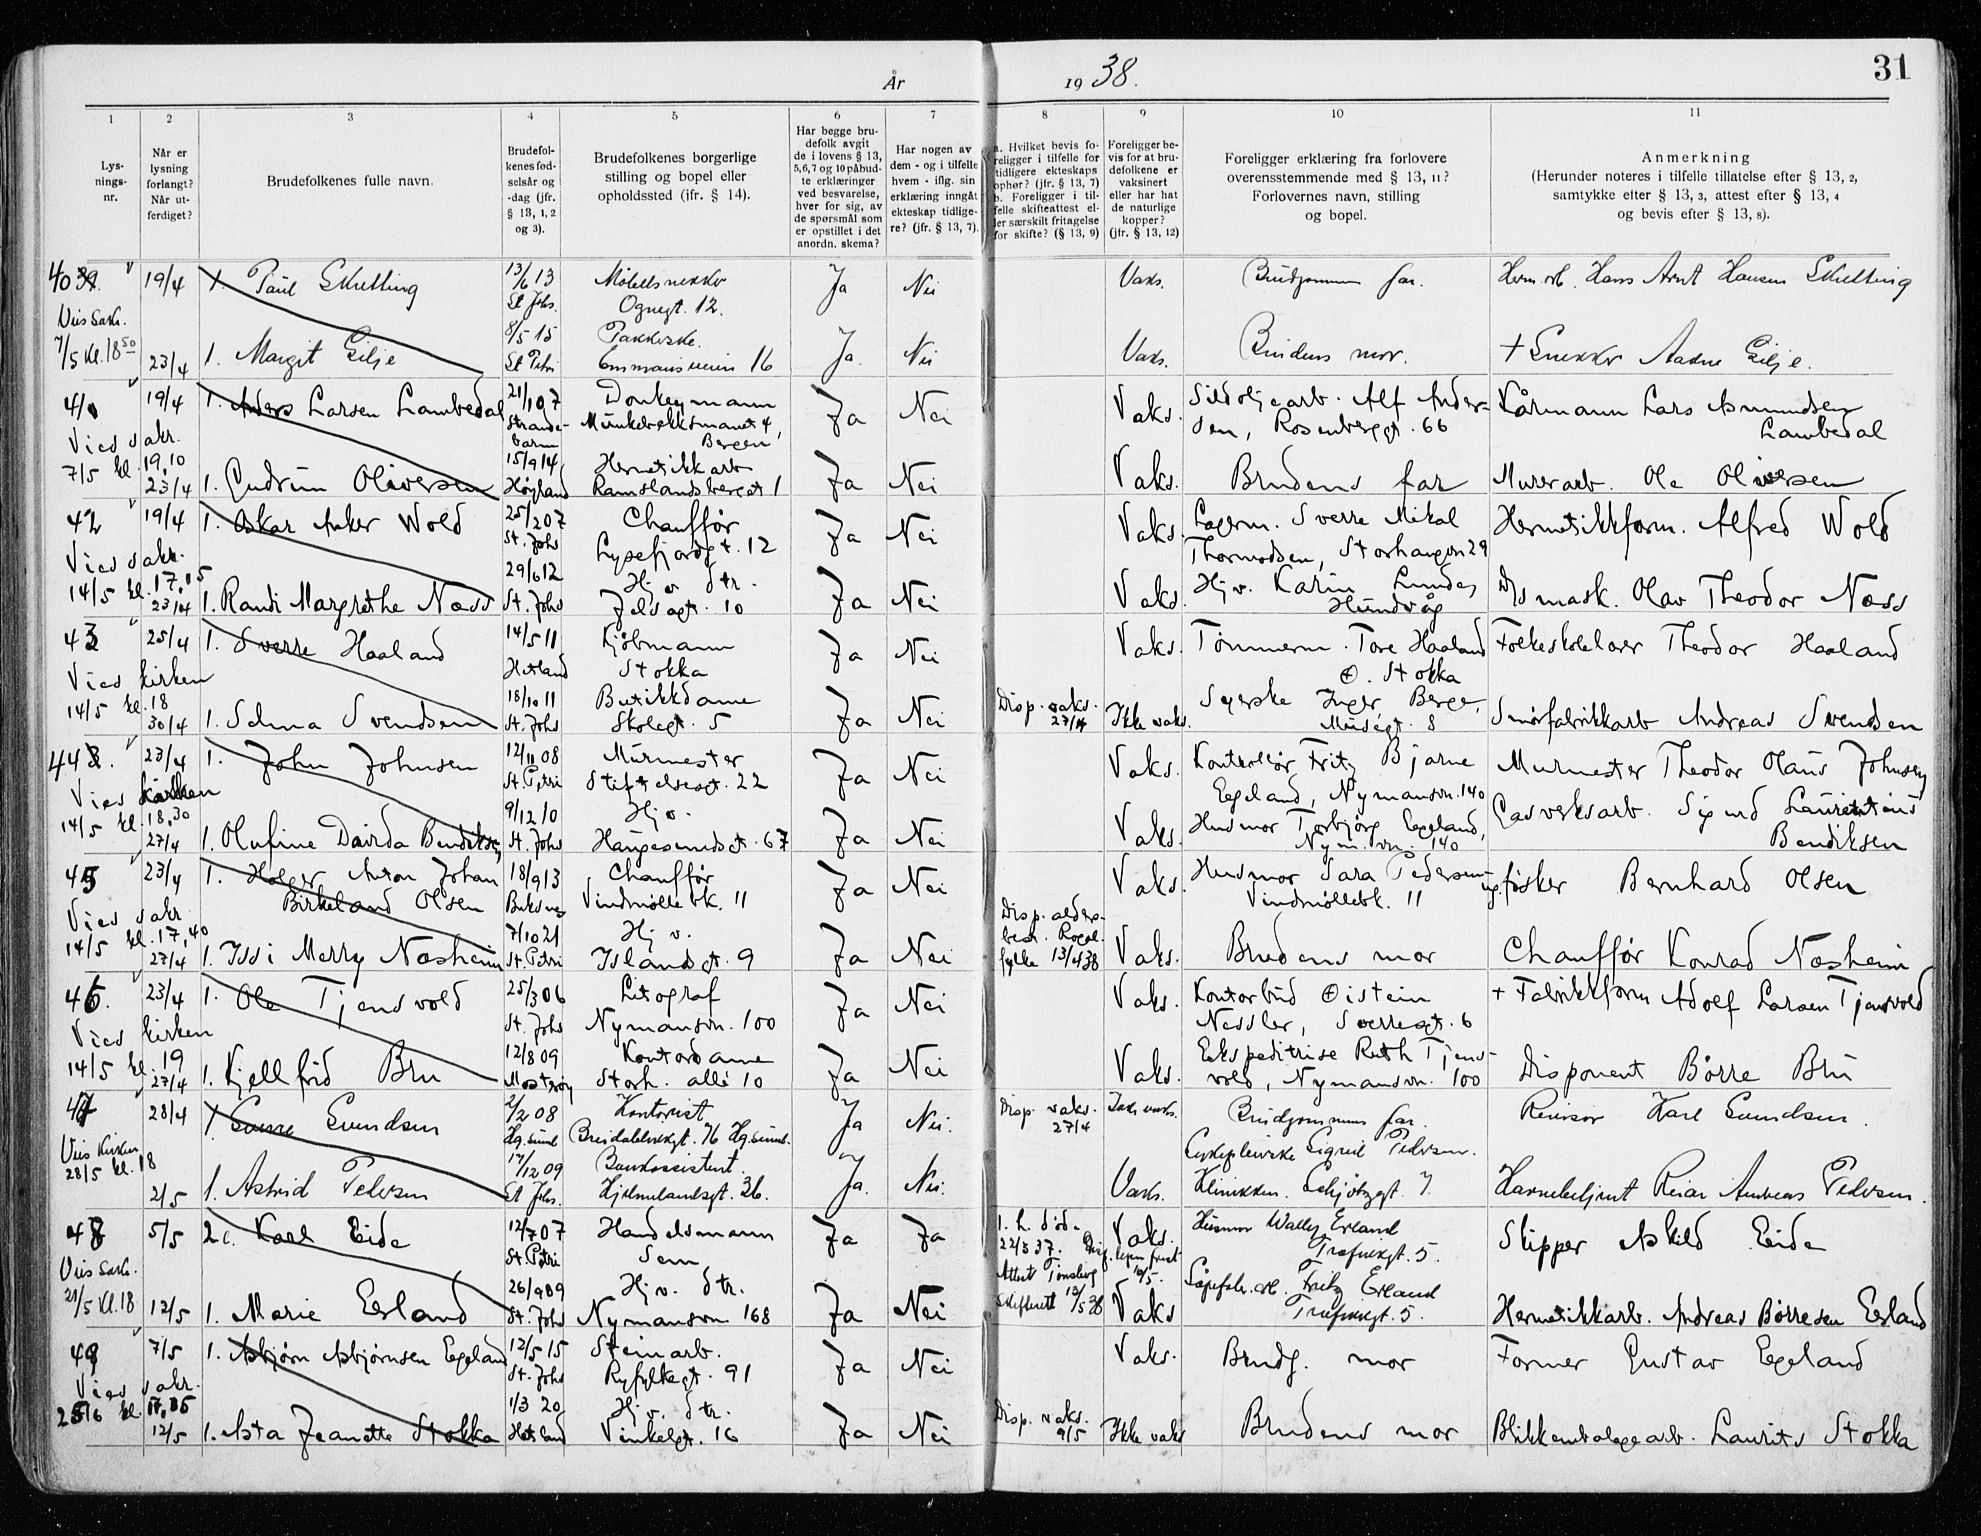 År 1938.
31
1 2 3 4 5 6 7 8 9 10 11
Lys-
nings-
nr.
Når er
lysning
forlangt?
Når ut-
ferdiget?
Brudefolkenes fulle navn.
Brudefol-
kenes fød-
selsår og
-dag (jfr.
§ 13, 1, 2
og 3).
Brudefolkenes borgerlige
stilling og bopel eller
opholdssted (jfr. § 14).
Har begge bru-
defolk avgit
de i lovens § 13,
5,6,7 og 10 påbud-
te erklæringer
ved besvarelse,
hver for sig, av
de spørsmål som
er opstillet i det
anordn. skema?
Har nogen av
dem - og i tilfelle
hvem - iflg. sin
erklæring inngåt
ekteskap tidlige-
re? (jfr. § 13, 7).
a. Hvilket bevis fo-
religger i tilfelle for
tidligere ekteskaps
ophør? (jfr. § 13, 7)
b. Foreligger i til-
felle skifteattest el-
ler særskilt fritagelse
for skifte? (§ 13, 9)
Foreligger be-
vis for at bru-
defolkene er
vaksinert
eller har hat
de naturlige
kopper?
(jfr. § 13, 12)
Foreligger erklæring fra forlovere
overensstemmende med § 13, 11?
Forlovernes navn, stilling
og bopel.
Anmerkning
(Herunder noteres i tilfelle tillatelse efter § 13, 2,
samtykke efter § 13, 3, attest efter § 13, 4
og bevis efter § 13, 8).
40 19/4 Paul Skilling 13/6 13 Møbelsnekker Ja Nei Vaks. Brudgommens far. Herm. arb. Hans Arnt Hansen Skilling
Vies sakr. St Johs. Ognagt. 12.
7/5 kl. 18 50 8/5 15 Pakkerske.
23/4 1. Margit Gilje St Petri Emmausveien 16 Ja. Nei Vaks. Brudens mor. + Snekker Aadne Gilje.
41 19/4 1. Anders Larsen Lambedal 21/10 7 Donkeymann Ja Nei Vaks. Sildoljearb. Alf Ander- Kårmann Lars Amundsen
Strande- Munkebekksmauet 4, sen, Rosenberggt. 66 Lambedal
Vies sakr. barm Bergen
7/5 kl. 19,10 15/9 14 Hermetikkarb
23/4 1. Gudrun Oliversen Høyland Ramslandsberget 1 Ja Nei Vaks. Brudens far Murerarb. Ole Oliversen
42 19/4 1. Oskar Anker Wold 25/2 07 Chauffør Ja Nei Vaks. Lagerm. Sverre Mikal Hermetikkform. Alfred Wold
Vies sakr. St. Johs Lysefjordgt. 12 Thormodsen, Storhaugvn 29
14/5 kl. 17,15 29/6 12 Hj. v. dtr. Hj v. Karin Lunde,
23/4 1. Randi Margrethe Næss St. Johs Jelsagt. 10 Ja Nei Vaks. Hundvåg D/s mask. Olav Theodor Næss
43 25/4 1. Sverre Haaland 14/5 11 Kjøbmann Ja Nei Vaks. Tømmerm. Tore Haaland Folkeskolelærer Theodor Haaland
Vies kirken Hetland Stokka Ø. Stokka
14/5 kl. 18 18/10 11 Butikkdame Syerske Inger Berge,
30/4 1. Selma Svendsen St. Johs Skolegt. 5 Ja Nei Disp. vaks. 27/4 Ikke vaks. Musegt. 8 Smørfabrikkarb Andreas Svendsen
44 23/4 1. John Johnsen 12/11 08 Murmester Ja Nei Vaks. Kontrollør Fritz Bjarne Murmester Theodor Olaus Johnsen
Vies kirken St. Petri Stiftelsesgt. 22 Egeland, Nymansvn. 140
14/5 kl. 18,30 9/12 10 Hj v. Husmor Torbjørg Egeland, Gasverksarb. Sigurd Laurentius
27/4 1. Olufine Davida Bendiksen St. Johs Haugesundsgt. 67 Ja Nei Vaks. Nym. vn. 140 Bendiksen
45 23/4 1. Holger Anton Johan 18/9 13 Chauffør Ja Nei Vaks. Husmor Sara Pedersen fisker Bernhard Olsen
Birkeland Olsen Buksnes Vindmøllebk. 11 Vindmøllebk. 11
Vies sakr. 7/10 21 Hj v. Disp. alders-
14/5 kl. 17,40 best. Rogal.
27/4 1. Issi Merry Næsheim St. Petri Islandsgt. 9 Ja Nei fylke 13/4 38 Vaks. Brudens mor Chauffør Konrad Næsheim
46. 23/4 1. Ole Tjensvold 25/3 06 Litograf Ja Nei Vaks. Kontorbud Øistein + Fabrikkform Adolf Larsen Tjensvold
Vies kirken St. Johs Nymansvn. 100 Nessler, Sverresgt. 6
14/5 kl. 19 12/8 09 Kontordame Ekspeditrise Ruth Tjens-
27/4 1. Kjellfrid Bru Mosterøy Storh. allé 10 Ja Nei Vaks. vold, Nymansvn. 100 Disponent Børre Bru
47 28/4 Sverre Svendsen 2/2 08 Kontorist Ja Nei. Disp. vaks. 27/4 Ikke vaks. Brudgommens far. Revisor Karl Svendsen.
Vies Kirken Hg.sund 76 Hg.sund.
28/5 kl. 18 17/12 09 Bankassistent. Sykepleierske Sigrid Pedersen.
2/5 1. Astrid Pedersen St Johs. Hjelmelandsgt. 36. Ja. Nei. Vaks. Klinikken. 7. Havnebetjent Reiar Andreas Pedersen.
48 5/5 2 e. Karl Eide 12/7 07 Handelsmann Ja Ja 1. h. død Vaks. Husmor Wally Erland Skipper Askild Eide
Vies Sakr. St. Petri Sem 22/3 37. 10/5. 5.
21/5 kl. 18 26/9 89 Hj v. dtr. Attest Tønsberg Såpefabr.arb. Fritz Erland
12/5 1. Marie Erland St. Johs Nymansvn 168 Ja Nei Skifterett 13/5 38 Vaks 5. Hermetikkarb. Andreas Børresen Erland
49 7/5 1. Asbjørn Asbjørnsen Egeland 12/5 15 Steinarb. Ja Nei Vaks. Brudg. mor Former Gustav Egeland
Vies sakr. St. Johs Ryfylkegt. 91
25/6 kl. 17,35 1/3 20 Hj v. dtr.
12/5 1. Asta Jeanette Stokka Hetland Vinkelgt. 16 Ja Nei Disp. vaks. 9/5 Ikke vaks Brudens mor Blikkemballagearb. Laurits Stokka